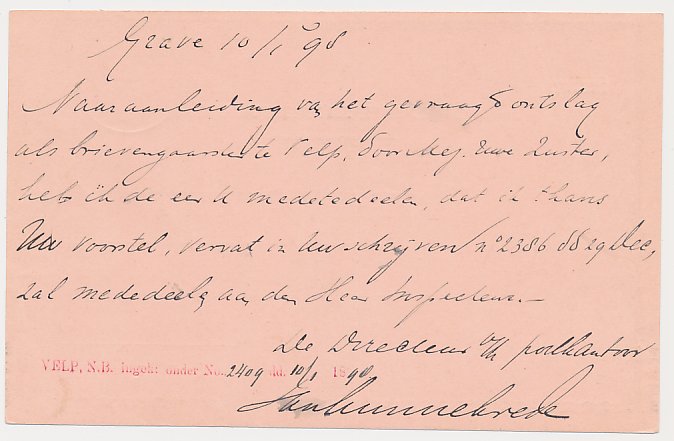 Grave 10/1 98
Naar aanleiding van het gevraagd ontslag
als brievengaarder te Velp, door Mej. Uwe Zuster,
heb ik de eer U mede te deelen, dat ik thans
Uw voorstel, vervat in Uw schrijven no 2386 dd 29 Dec,
zal mededeelen aan den Heer Inspecteur.—
De Directeur v/h postkantoor
VELP, N.B. ingek: onder No. 2409 dd. 10/1 1898